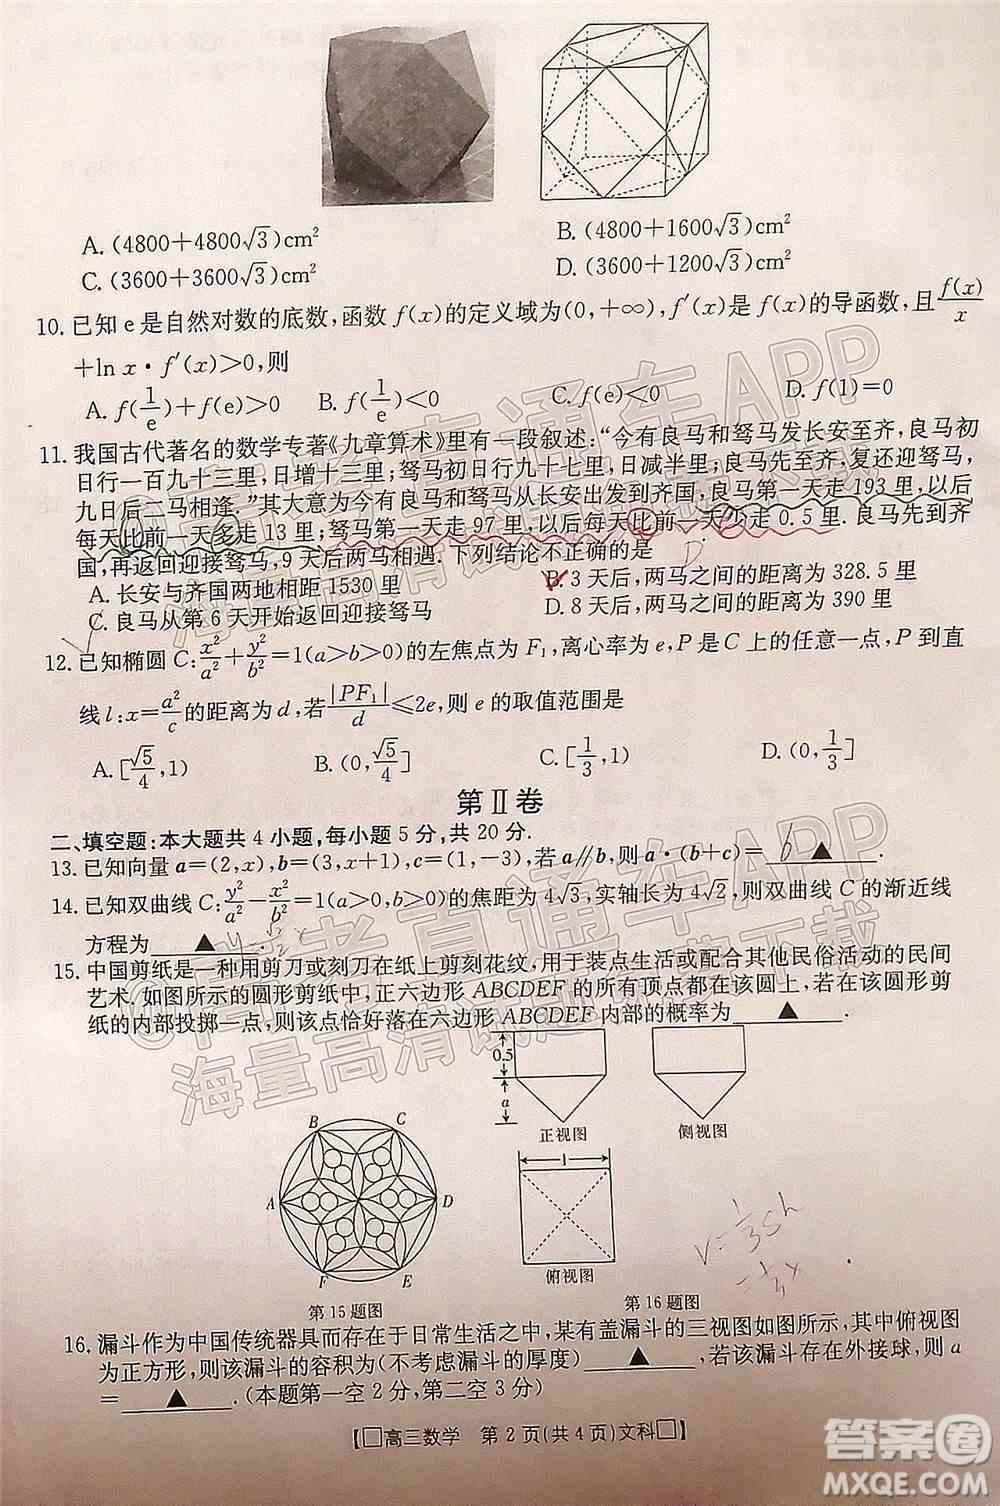 A. (4800+4800√3)cm²
B. (4800+1600√3)cm²
C. (3600+3600√3)cm²
D. (3600+1200√3)cm²
10. 已知e是自然对数的底数,函数f(x)的定义域为(0,+∞),f′(x)是f(x)的导函数,且f(x)/x
+ln x·f′(x)>0,则
A. f(1/e)+f(e)>0
B. f(1/e)<0
C. f(e)<0
D. f(1)=0
11. 我国古代著名的数学专著《九章算术》里有一段叙述:“今有良马和驽马发长安至齐,良马初
日行一百九十三里,日增十三里;驽马初日行九十七里,日减半里;良马先至齐,复还迎驽马,
九日后二马相逢.”其大意为今有良马和驽马从长安出发到齐国,良马第一天走193里,以后
每天比前一天多走13里;驽马第一天走97里,以后每天比前一天少走0.5里.良马先到齐
国,再返回迎接驽马,9天后两马相遇.下列结论不正确的是
D
A. 长安与齐国两地相距1530里
B. 3天后,两马之间的距离为328.5里
C. 良马从第6天开始返回迎接驽马
D. 8天后,两马之间的距离为390里
12. 已知椭圆C:x²/a²+y²/b²=1(a>b>0)的左焦点为F₁,离心率为e,P是C上的任意一点,P到直
线l:x=a²/c的距离为d,若|PF₁|/d≤2e,则e的取值范围是
A. [√5/4,1)
B. (0,√5/4]
C. [1/3,1)
D. (0,1/3]
第Ⅱ卷
二、填空题:本大题共4小题,每小题5分,共20分.
13. 已知向量a=(2,x),b=(3,x+1),c=(1,-3),若a∥b,则a·(b+c)= ▲ .
14. 已知双曲线C:y²/a²-x²/b²=1(a>0,b>0)的焦距为4√3,实轴长为4√2,则双曲线C的渐近线
方程为 ▲ .
15. 中国剪纸是一种用剪刀或刻刀在纸上剪刻花纹,用于装点生活或配合其他民俗活动的民间
艺术.如图所示的圆形剪纸中,正六边形ABCDEF的所有顶点都在该圆上,若在该圆形剪
纸的内部投掷一点,则该点恰好落在六边形ABCDEF内部的概率为 ▲ .
0.5
a
正视图
侧视图
1
俯视图
B C
A D
F E
第15题图
第16题图
V=1/3Sh
16. 漏斗作为中国传统器具而存在于日常生活之中,某有盖漏斗的三视图如图所示,其中俯视图
为正方形,则该漏斗的容积为(不考虑漏斗的厚度) ▲ ,若该漏斗存在外接球,则a
= ▲ .(本题第一空2分,第二空3分)
【□高三数学 第2页(共4页)文科□】
高考直通车APP
海量高清试题免费下载
高考直通车APP
海量高清试题免费下载
答案圈
MXQE.COM